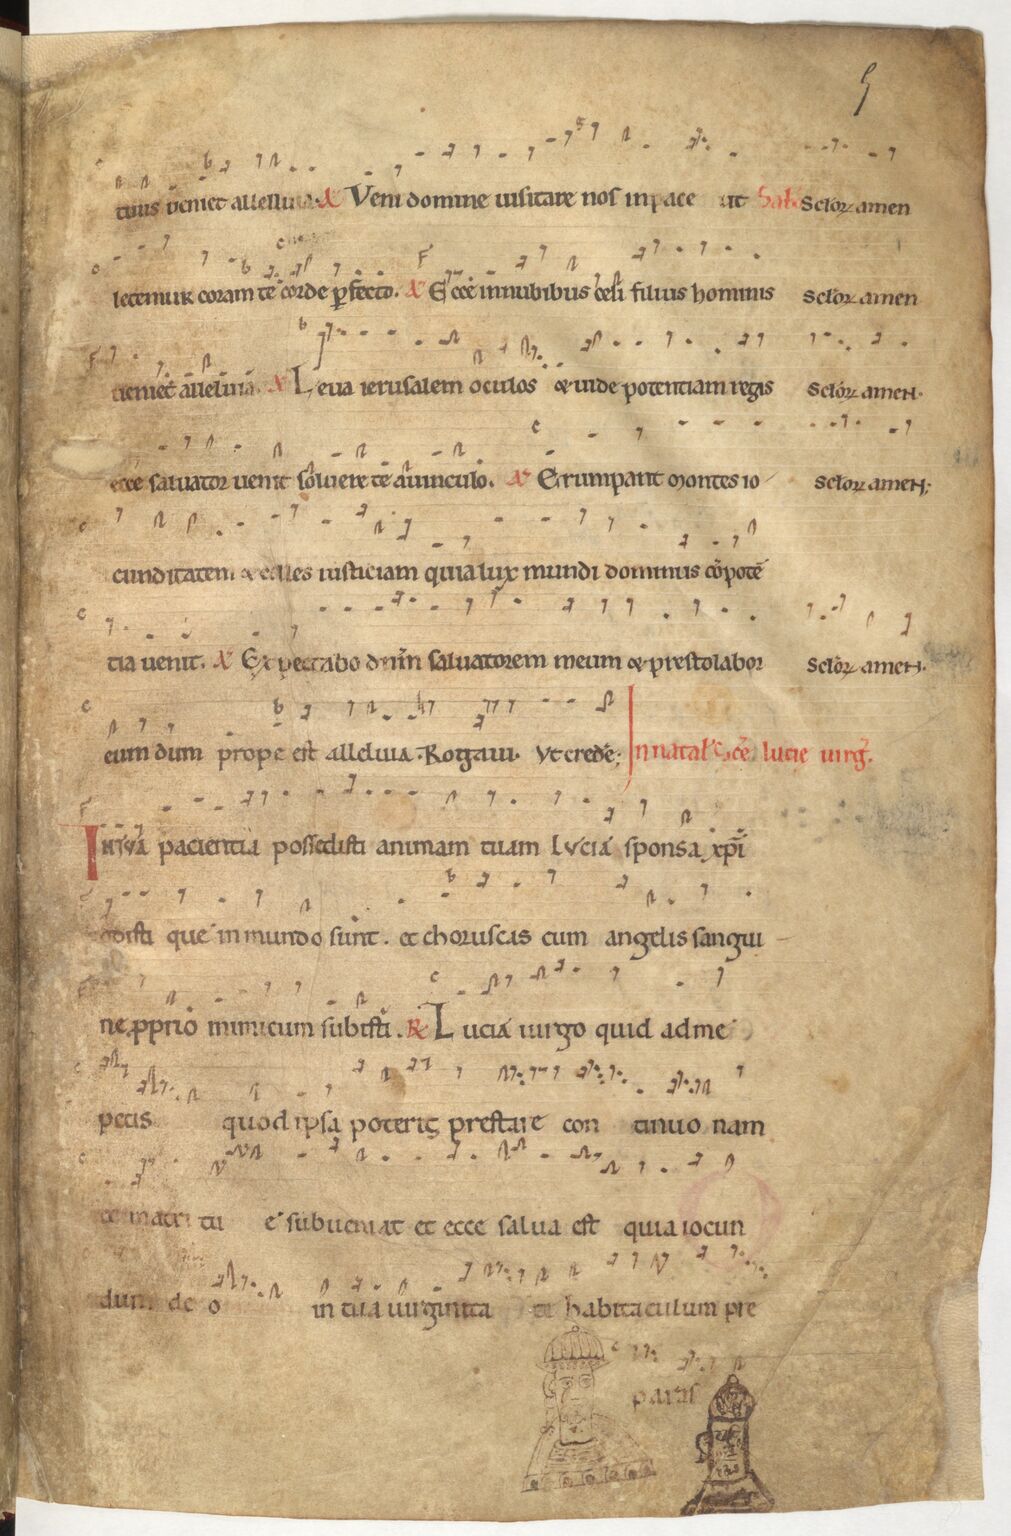 tuus veniet alleluia. A Veni domine visitare nos in pace ut Sclor amen
letemur coram te corde perfecto. A Ecce in nubibus celi filius hominis Sclor amen
veniet alleluia. A Leva ierusalem oculos & vide potentiam regis Sclor amen.
ecce salvator venit solvere te a vinculo. A Erumpant montes io Sclor amen;
cunditatem & colles iusticiam quia lux mundi dominus cū potē
tia venit. A Expectabo dnm̄ salvatorem meum & prestolabor Sclor amen.
eum dum prope est alleluia. Rogavi. Ut crede; In natał scē lucie virg.
In tua pacientia possedisti animam tuam Lucia sponsa xp̄i
odisti que in mundo sunt. et choruscas cum angelis sangui
ne pprio inimicum subisti. R Lucia virgo quid ad me
petis quod ipsa poteris prestare con tinuo nam
et matri tu e subveniat et ecce salva est quia iocun
dum deo in tua virginita te habitaculum pre
paras